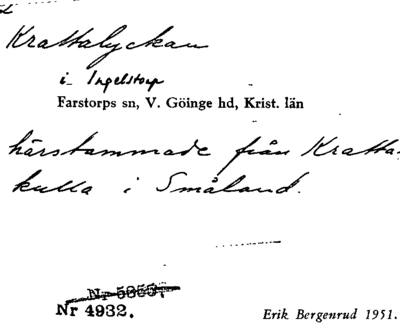 Krattalyckan
i Ingelstorp
Farstorps sn, V. Göinge hd, Krist. län
härstammade från Kratta-
kulla i Småland.
Nr 5355.
Nr 4932.
Erik Bergenrud 1951.